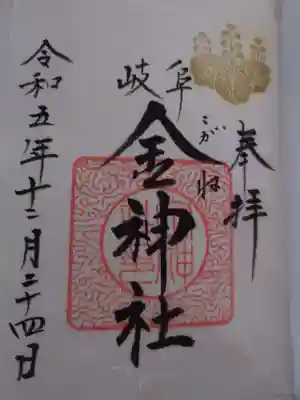 奉拝
岐阜
こがね
金神社
令和五年十二月二十四日